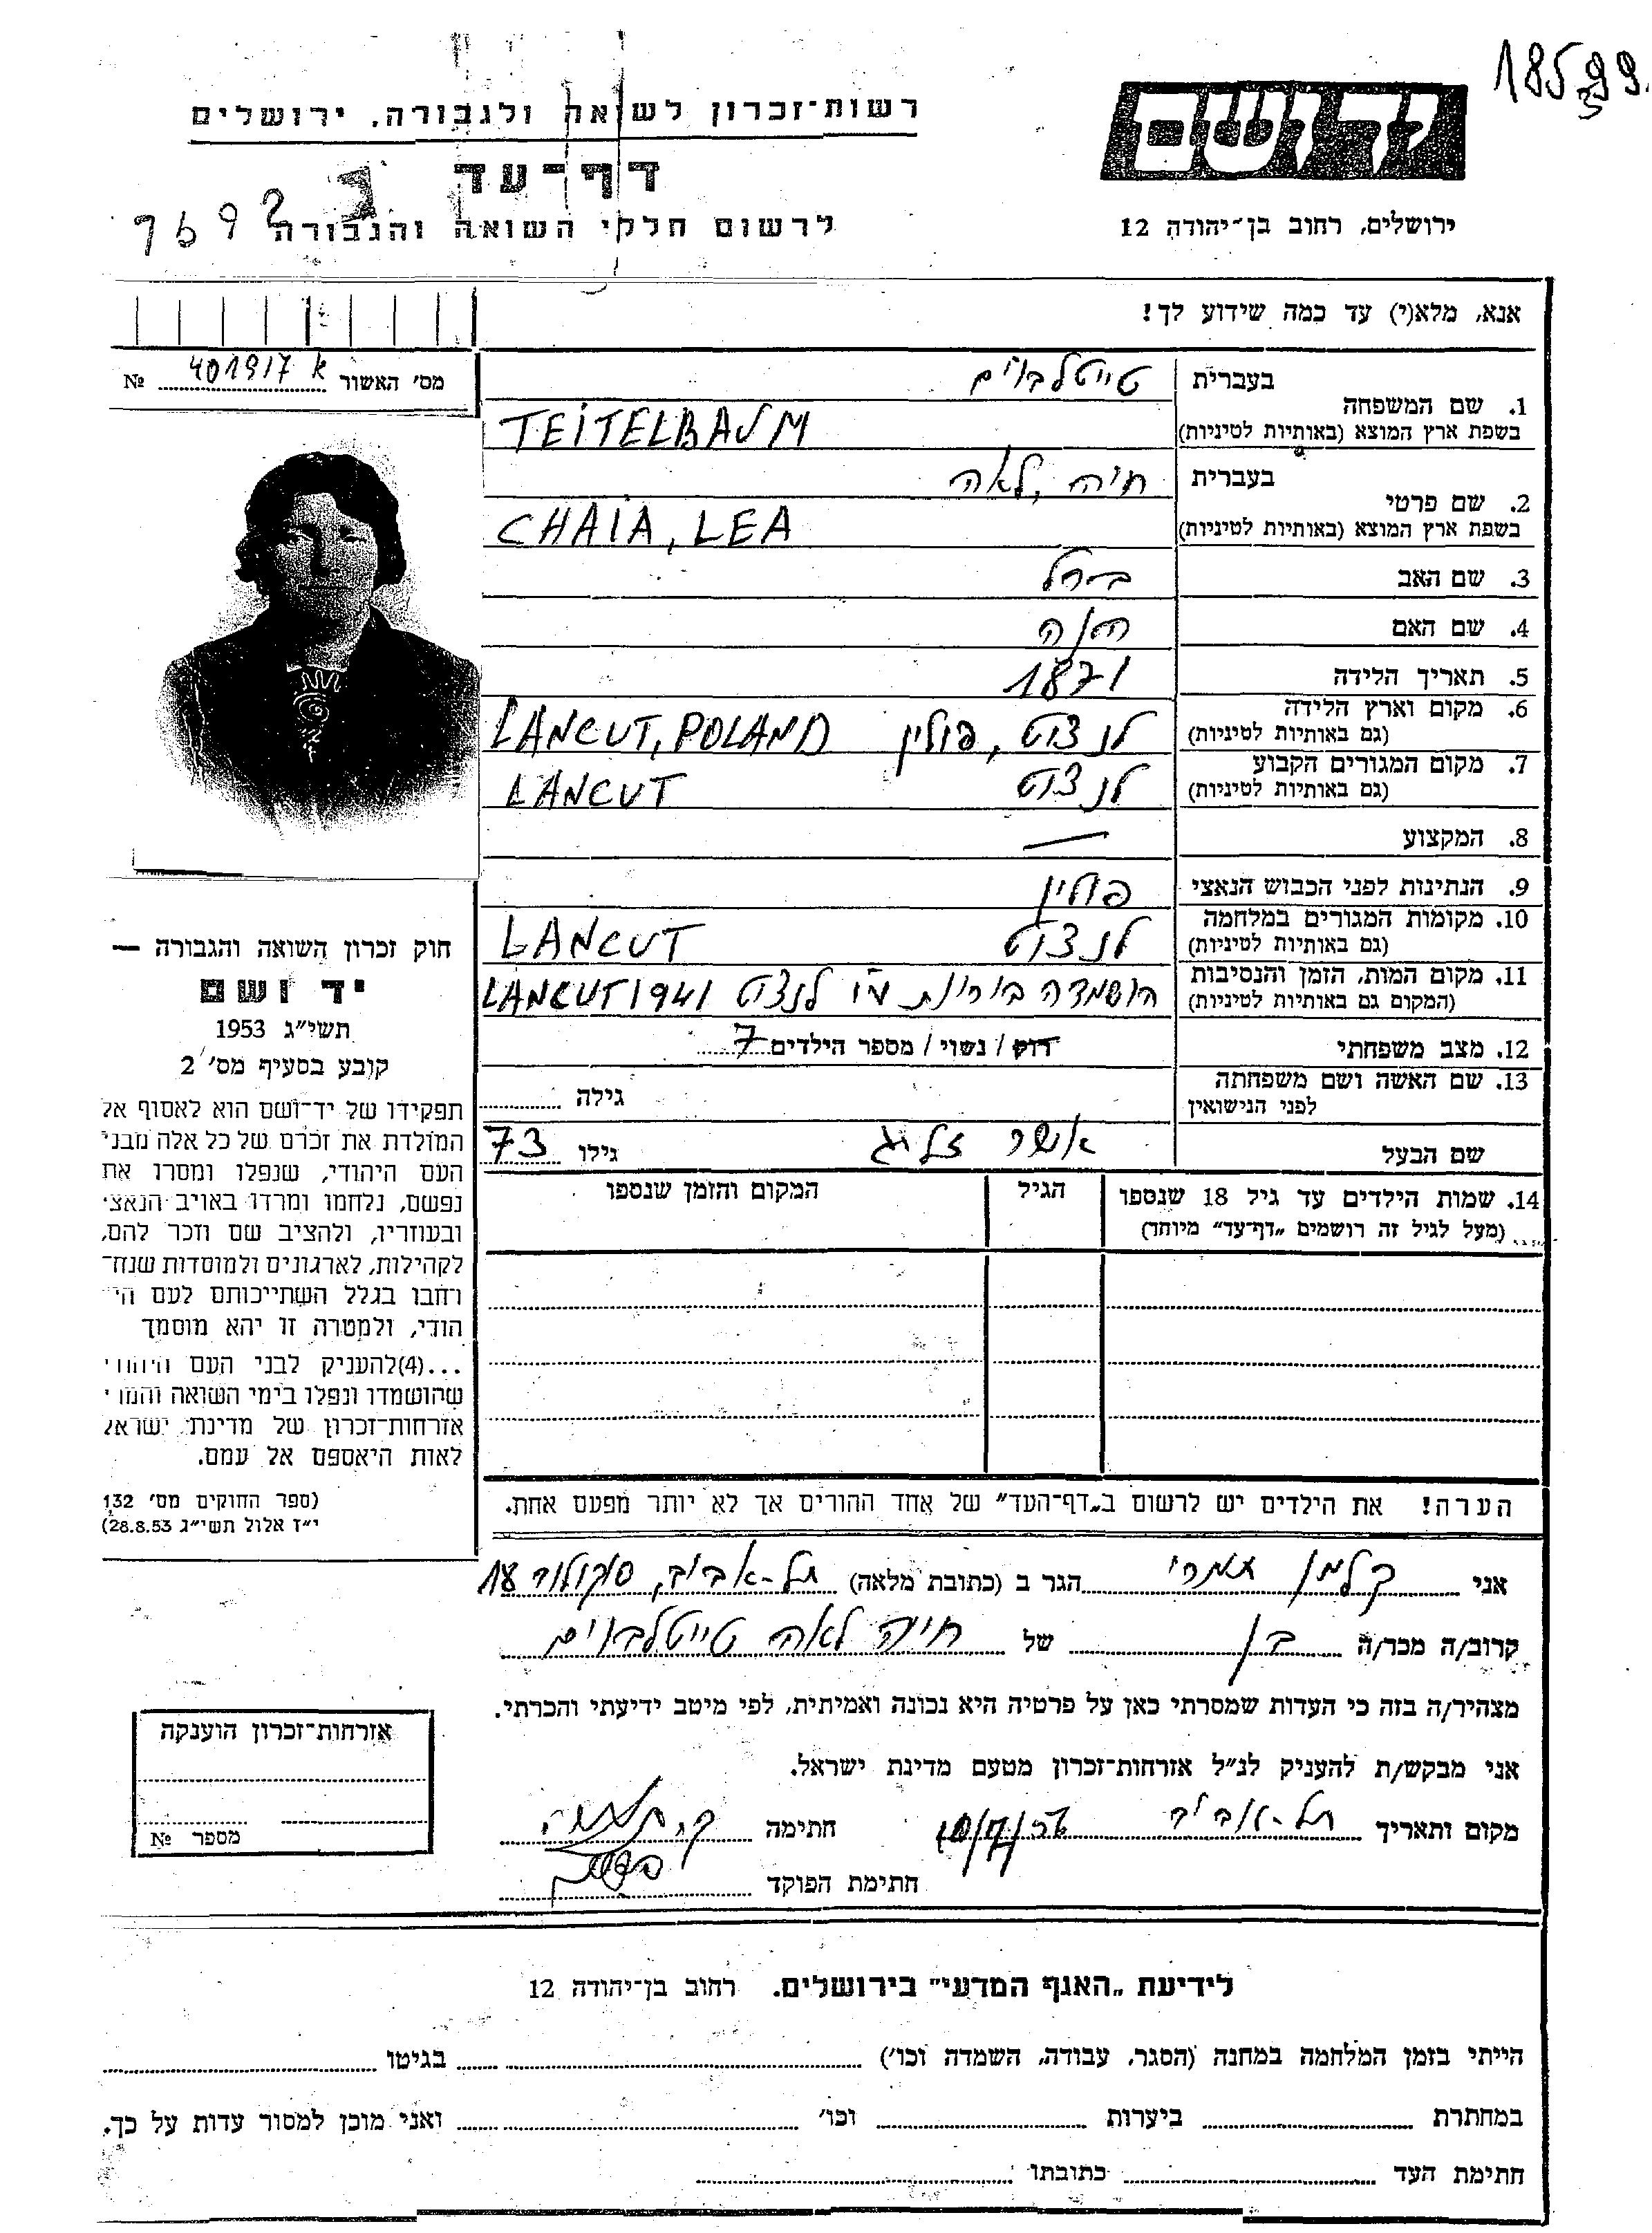 18599
רשות־זכרון לשואה ולגבורה, ירושלים
יד ושם
דף־עד
לרשום חללי השואה והגבורה
ירושלים, רחוב בן־יהודה 12
אנא, מלא(י) עד כמה שידוע לך!
מס׳ האשור 401917 א №
בעברית טייטלבוים
1. שם המשפחה
בשפת ארץ המוצא (באותיות לטיניות) TEITELBAUM
בעברית חיה, לאה
2. שם פרטי
בשפת ארץ המוצא (באותיות לטיניות) CHAIA, LEA
3. שם האב ברל
4. שם האם חנה
5. תאריך הלידה 1871
6. מקום וארץ הלידה
(גם באותיות לטיניות) לנצוט, פולין LANCUT, POLAND
7. מקום המגורים הקבוע
(גם באותיות לטיניות) לנצוט LANCUT
8. המקצוע —
9. הנתינות לפני הכבוש הנאצי פולין
10. מקומות המגורים במלחמה
(גם באותיות לטיניות) לנצוט LANCUT
11. מקום המות, הזמן והנסיבות
(המקום גם באותיות לטיניות) הושמדה לנצוט LANCUT 1941
12. מצב משפחתי רוק / נשוי / מספר הילדים 7
13. שם האשה ושם משפחתה
לפני הנישואין גילה
שם הבעל אשר זליג גילו 73
14. שמות הילדים עד גיל 18 שנספו הגיל המקום והזמן שנספו
(מעל לגיל זה רושמים „דף־עד” מיוחד)
הערה! את הילדים יש לרשום ב„דף־העד” של אחד ההורים אך לא יותר מפעם אחת.
חוק זכרון השואה והגבורה —
יד ושם
תשי״ג 1953
קובע בסעיף מס׳ 2
תפקידו של יד־ושם הוא לאסוף אל
המולדת את זכרם של כל אלה מבני
העם היהודי, שנפלו ומסרו את
נפשם, נלחמו ומרדו באויב הנאצי
ובעוזריו, ולהציב שם וזכר להם,
לקהילות, לארגונים ולמוסדות שנח־
רהבו בגלל השתייכותם לעם הי־
הודי, ולמטרה זו יהא מוסמך
...(4) להעניק לבני העם היהודי
שהושמדו ונפלו בימי השואה והמרי
אזרחות־זכרון של מדינת ישראל
לאות היאספם אל עמם.
(ספר החוקים מס׳ 132
י״ז אלול תשי״ג 28.8.53)
אני קלמן הגר ב (כתובת מלאה) תל-אביב, סוקולוב 18
קרוב/ה מכר/ה בן של חיה לאה טייטלבוים
מצהיר/ה בזה כי העדות שמסרתי כאן על פרטיה היא נכונה ואמיתית, לפי מיטב ידיעתי והכרתי.
אני מבקש/ת להעניק לנ״ל אזרחות־זכרון מטעם מדינת ישראל.
מקום ותאריך תל-אביב חתימה
חתימת הפוקד
אזרחות־זכרון הוענקה
מספר №
לידיעת „האגף המדעי” בירושלים. רחוב בן־יהודה 12
הייתי בזמן המלחמה במחנה (הסגר, עבודה, השמדה וכו׳) בגיטו
במחתרת ביערות וכו׳ ואני מוכן למסור עדות על כך.
חתימת העד כתובתו